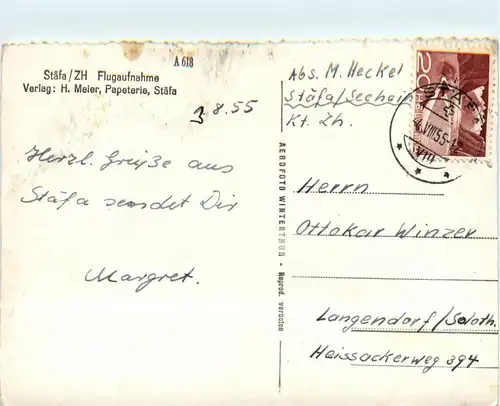 Stäfa/ZH Flugaufnahme
Verlag: H. Meier, Papeterie, Stäfa
A 618
3.8.55
Herzl. Grüße aus
Stäfa sendet Dir
Margret.
AEROFOTO WINTERTHUR - Reprod. verboten
Abs. M. Heckel
Stäfa/Seehain
Kt. Zh.
20
VIII.55-1
Herrn
Ottokar Winzer
Langendorf/Soloth.
Heissackerweg 394